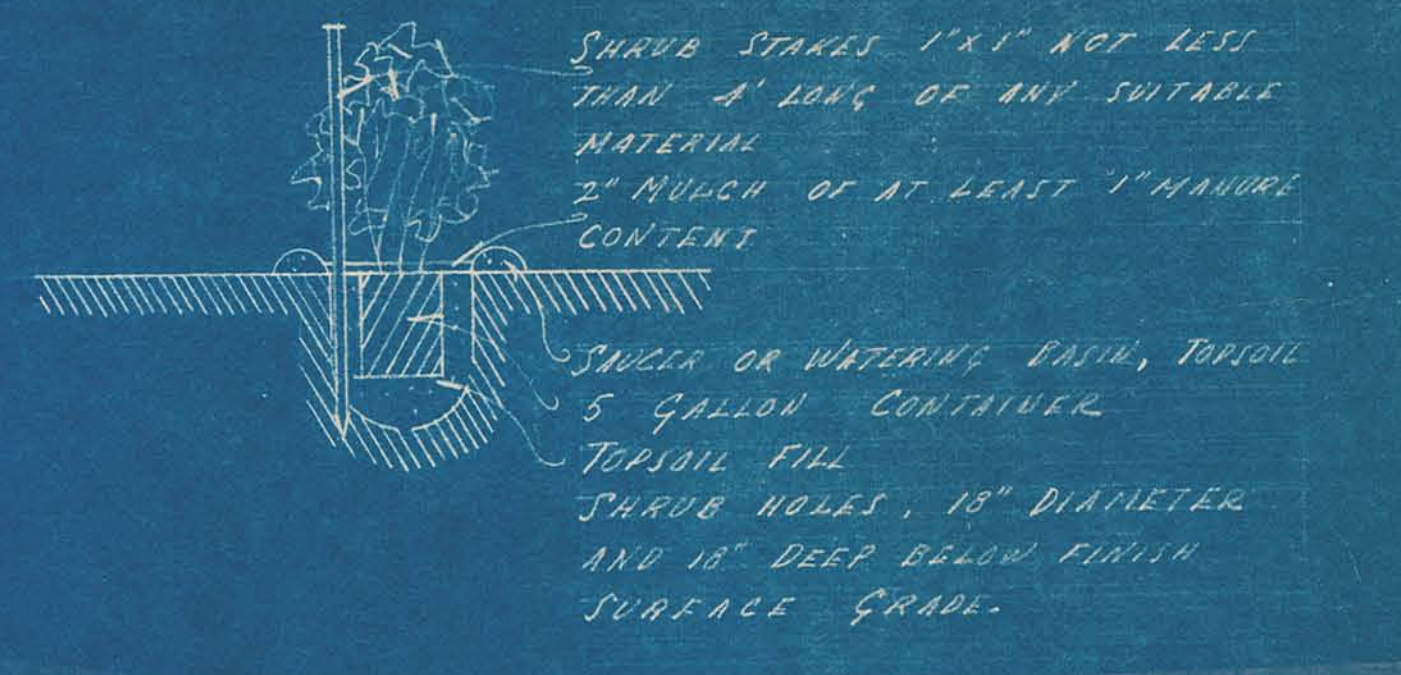 SHRUB STAKES 1"X1" NOT LESS
THAN 4' LONG OF ANY SUITABLE
MATERIAL
2" MULCH OF AT LEAST 1" MANURE
CONTENT
SAUCER OR WATERING BASIN, TOPSOIL
5 GALLON CONTAINER
TOPSOIL FILL
SHRUB HOLES, 18" DIAMETER
AND 18" DEEP BELOW FINISH
SURFACE GRADE.